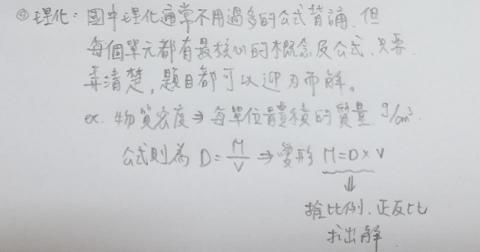 ④ 理化：國中理化通常不用過多的公式背誦，但
每個單元都有最核心的概念及公式，只要
弄清楚，題目都可以迎刃而解。
ex. 物質密度⇒每單位體積的質量 g/cm³.
公式則為 D=M/V ⇒變形 M=D×V
⇓
推比例、正反比
找出解